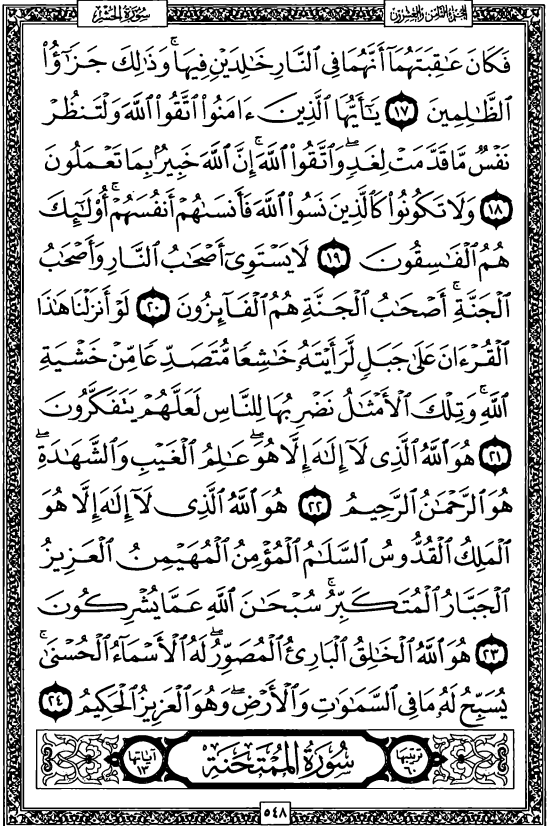 الجزء الثامن والعشرون
سورة الحشر
فَكَانَ عَٰقِبَتَهُمَآ أَنَّهُمَا فِى ٱلنَّارِ خَٰلِدَيْنِ فِيهَا ۚ وَذَٰلِكَ جَزَٰٓؤُا۟
ٱلظَّٰلِمِينَ ١٧ يَٰٓأَيُّهَا ٱلَّذِينَ ءَامَنُوا۟ ٱتَّقُوا۟ ٱللَّهَ وَلْتَنظُرْ
نَفْسٌ مَّا قَدَّمَتْ لِغَدٍ ۖ وَٱتَّقُوا۟ ٱللَّهَ ۚ إِنَّ ٱللَّهَ خَبِيرٌۢ بِمَا تَعْمَلُونَ
١٨ وَلَا تَكُونُوا۟ كَٱلَّذِينَ نَسُوا۟ ٱللَّهَ فَأَنسَىٰهُمْ أَنفُسَهُمْ ۚ أُو۟لَٰٓئِكَ
هُمُ ٱلْفَٰسِقُونَ ١٩ لَا يَسْتَوِىٓ أَصْحَٰبُ ٱلنَّارِ وَأَصْحَٰبُ
ٱلْجَنَّةِ ۚ أَصْحَٰبُ ٱلْجَنَّةِ هُمُ ٱلْفَآئِزُونَ ٢٠ لَوْ أَنزَلْنَا هَٰذَا
ٱلْقُرْءَانَ عَلَىٰ جَبَلٍ لَّرَأَيْتَهُۥ خَٰشِعًا مُّتَصَدِّعًا مِّنْ خَشْيَةِ
ٱللَّهِ ۚ وَتِلْكَ ٱلْأَمْثَٰلُ نَضْرِبُهَا لِلنَّاسِ لَعَلَّهُمْ يَتَفَكَّرُونَ
٢١ هُوَ ٱللَّهُ ٱلَّذِى لَآ إِلَٰهَ إِلَّا هُوَ ۖ عَٰلِمُ ٱلْغَيْبِ وَٱلشَّهَٰدَةِ ۖ
هُوَ ٱلرَّحْمَٰنُ ٱلرَّحِيمُ ٢٢ هُوَ ٱللَّهُ ٱلَّذِى لَآ إِلَٰهَ إِلَّا هُوَ
ٱلْمَلِكُ ٱلْقُدُّوسُ ٱلسَّلَٰمُ ٱلْمُؤْمِنُ ٱلْمُهَيْمِنُ ٱلْعَزِيزُ
ٱلْجَبَّارُ ٱلْمُتَكَبِّرُ ۚ سُبْحَٰنَ ٱللَّهِ عَمَّا يُشْرِكُونَ
٢٣ هُوَ ٱللَّهُ ٱلْخَٰلِقُ ٱلْبَارِئُ ٱلْمُصَوِّرُ ۖ لَهُ ٱلْأَسْمَآءُ ٱلْحُسْنَىٰ ۚ
يُسَبِّحُ لَهُۥ مَا فِى ٱلسَّمَٰوَٰتِ وَٱلْأَرْضِ ۖ وَهُوَ ٱلْعَزِيزُ ٱلْحَكِيمُ ٢٤
ترتيبها ٦٠ سُورَةُ المُمْتَحنَة آياتها ١٣
٥٤٨